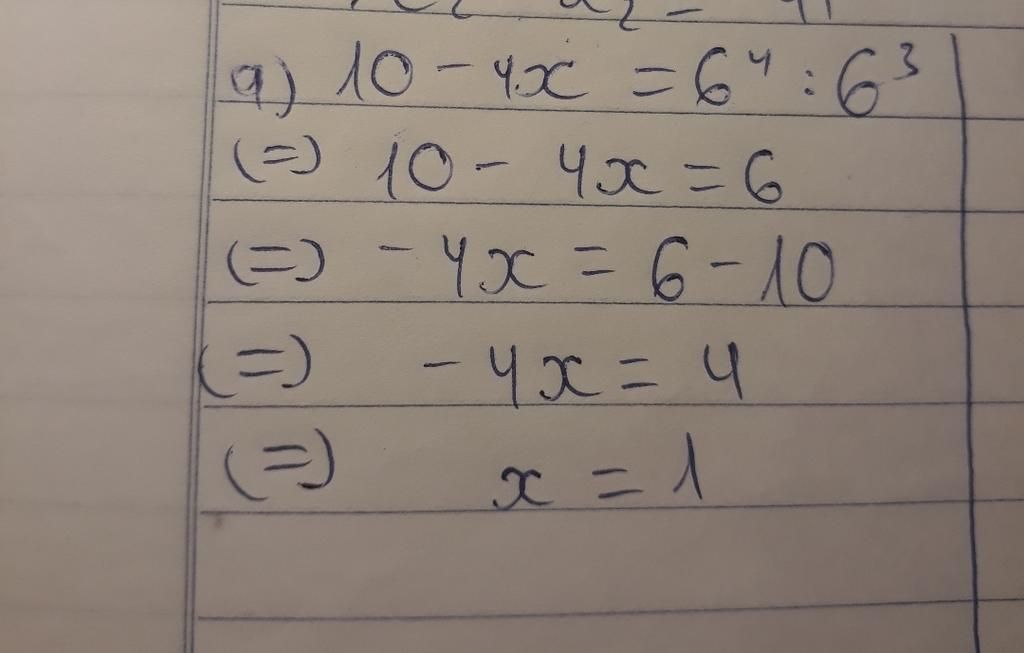 a) 10 - 4x = 6⁴ : 6³
(=) 10 - 4x = 6
(=) - 4x = 6 - 10
(=) - 4x = 4
(=) x = 1